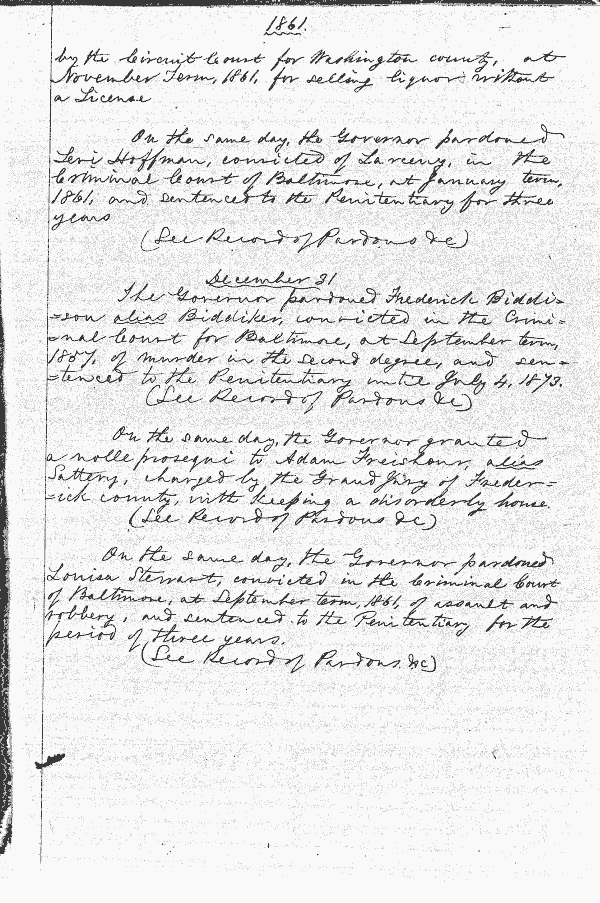 1861.
by the Circuit Court for Washington county, at
November Term, 1861, for selling liquor without
a License
On the same day, the Governor pardoned
Levi Hoffman, convicted of Larceny, in the
Criminal Court of Baltimore, at January term,
1861, and sentenced to the Penitentiary for three
years
(See Record of Pardons &c)
December 31
The Governor pardoned Frederick Biddi=
=son alias Biddiker, convicted in the Crimi=
=nal Court for Baltimore, at September term,
1857, of murder in the second degree, and sen=
=tenced to the Penitentiary until July 4, 1873.
(See Record of Pardons &c)
On the same day, the Governor granted
a nolle prosequi to Adam Freishour, alias
charged by the Grand Jury of Freder=
=ick county, with keeping a disorderly house.
(See Record of Pardons &c)
On the same day, the Governor pardoned
Louisa Stewart, convicted in the Criminal Court
of Baltimore, at September term, 1861, of assault and
robbery, and sentenced to the Penitentiary for the
period of three years.
(See Record of Pardons &c)